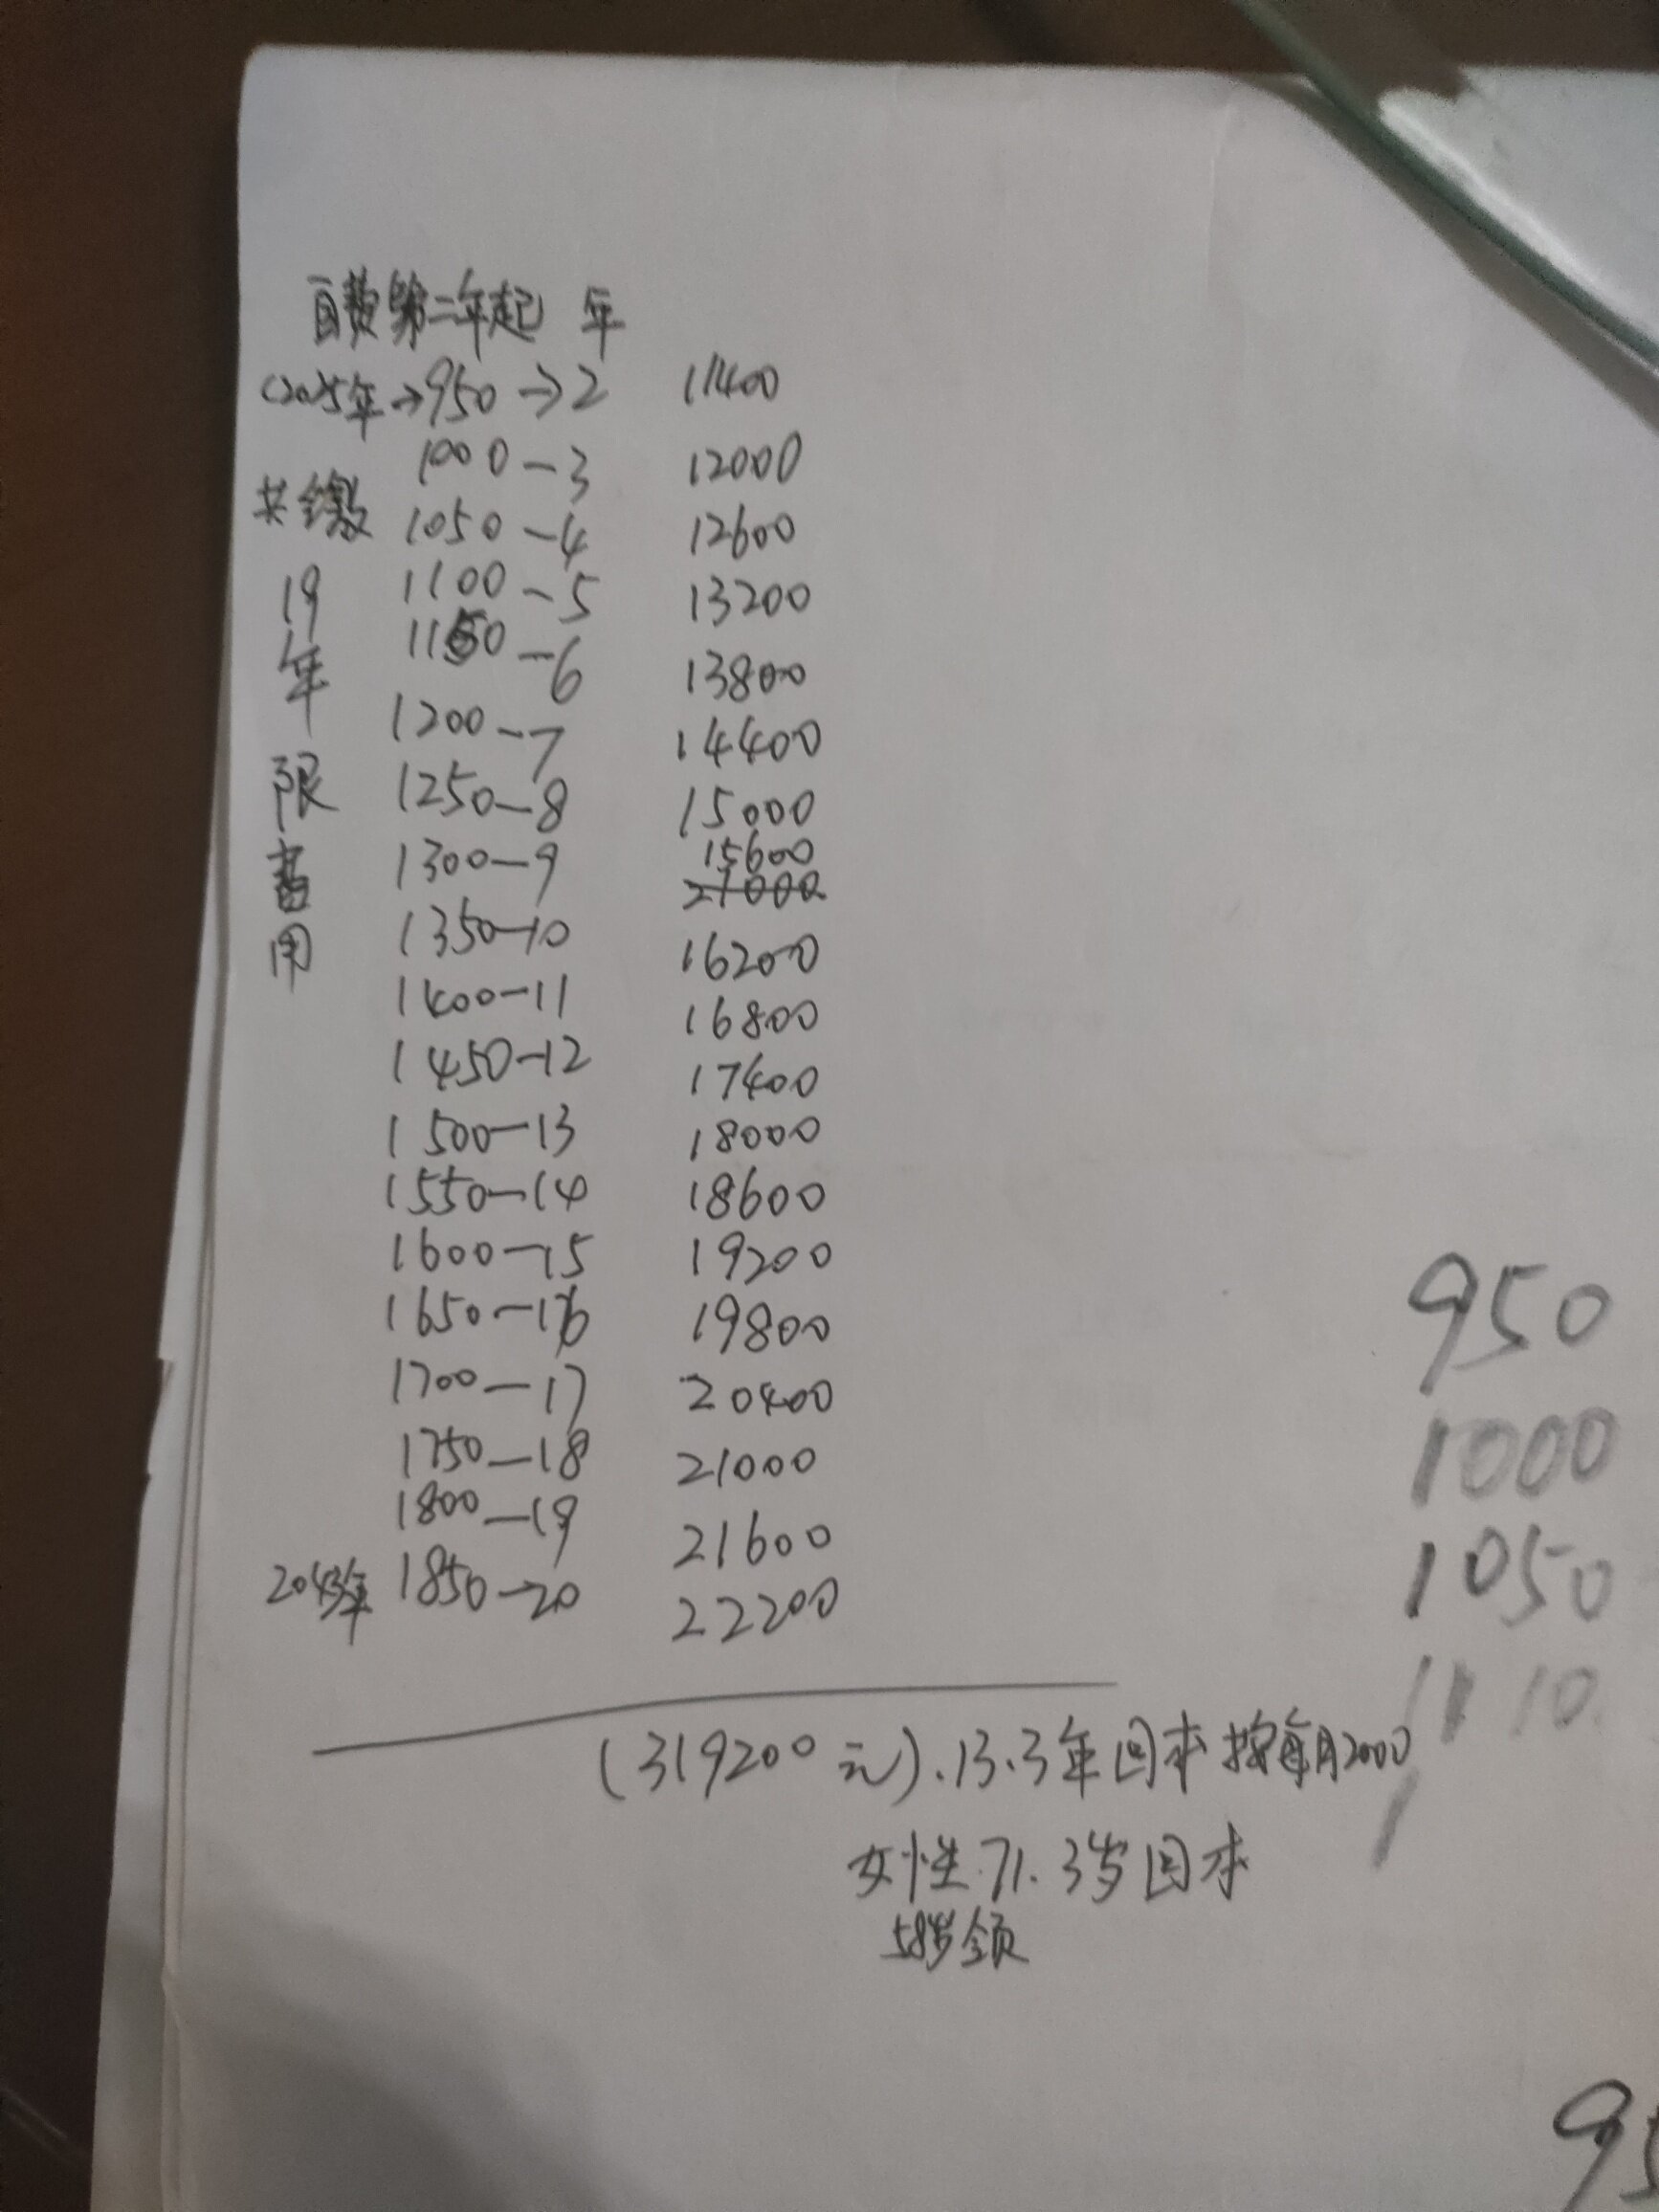 自费第二年起 年
(2025年→950→2 11400
1000-3 12000
共缴 1050-4 12600
19 1100-5 13200
年 1150-6 13800
1200-7 14400
限 1250-8 15000
1300-9 15600
21000
用 1350-10 16200
1400-11 16800
1450-12 17400
1500-13 18000
1550-14 18600
1600-15 19200
1650-16 19800
1700-17 20400
1750-18 21000
1800-19 21600
2043年 1850-20 22200
(319200元).13.3年回本按每月2000
女性71.3岁回本
58岁领
950
1000
1050
1110